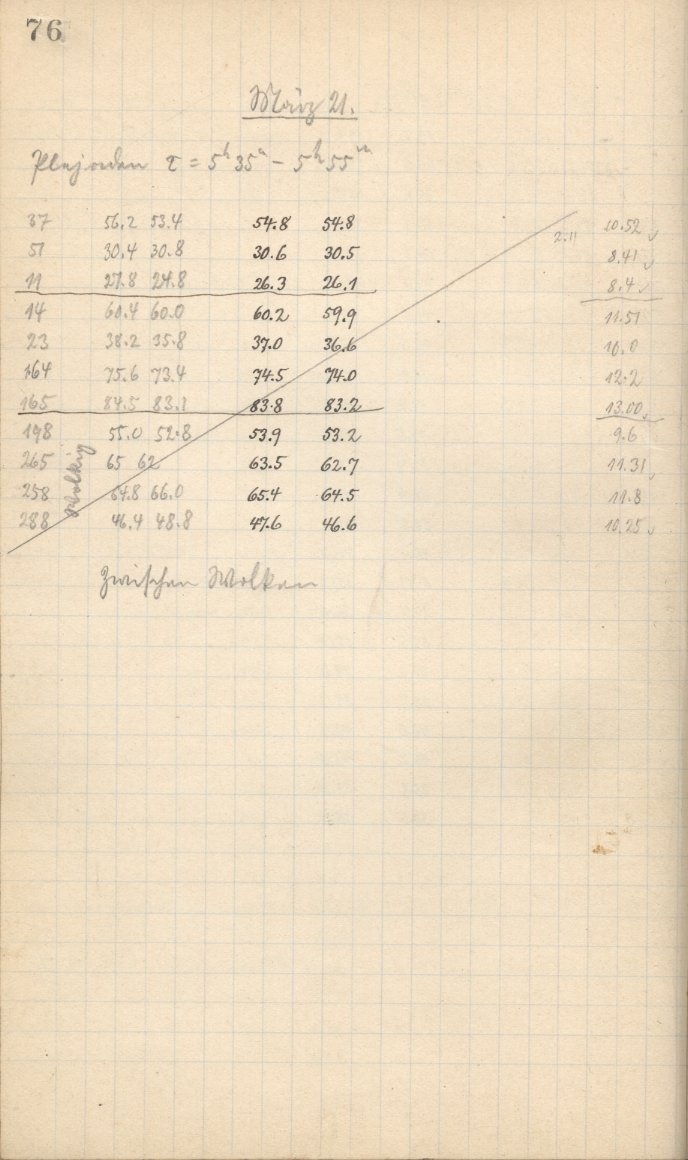 76
März 21.
Plejaden τ = 5h 35m – 5h 55m
37 56.2 53.4 54.8 54.8 2.11 10.52
51 30.4 30.8 30.6 30.5 8.41
11 27.8 24.8 26.3 26.1 8.4
14 60.4 60.0 60.2 59.9 11.51
23 38.2 35.8 37.0 36.6 10.0
164 75.6 73.4 74.5 74.0 12.2
165 84.5 83.1 83.8 83.2 13.00
198 55.0 52.8 53.9 53.2 9.6
265 65 62 63.5 62.7 11.31
258 64.8 66.0 65.4 64.5 11.8
288 46.4 48.8 47.6 46.6 10.25
Wolkig
Zwischen Wolken